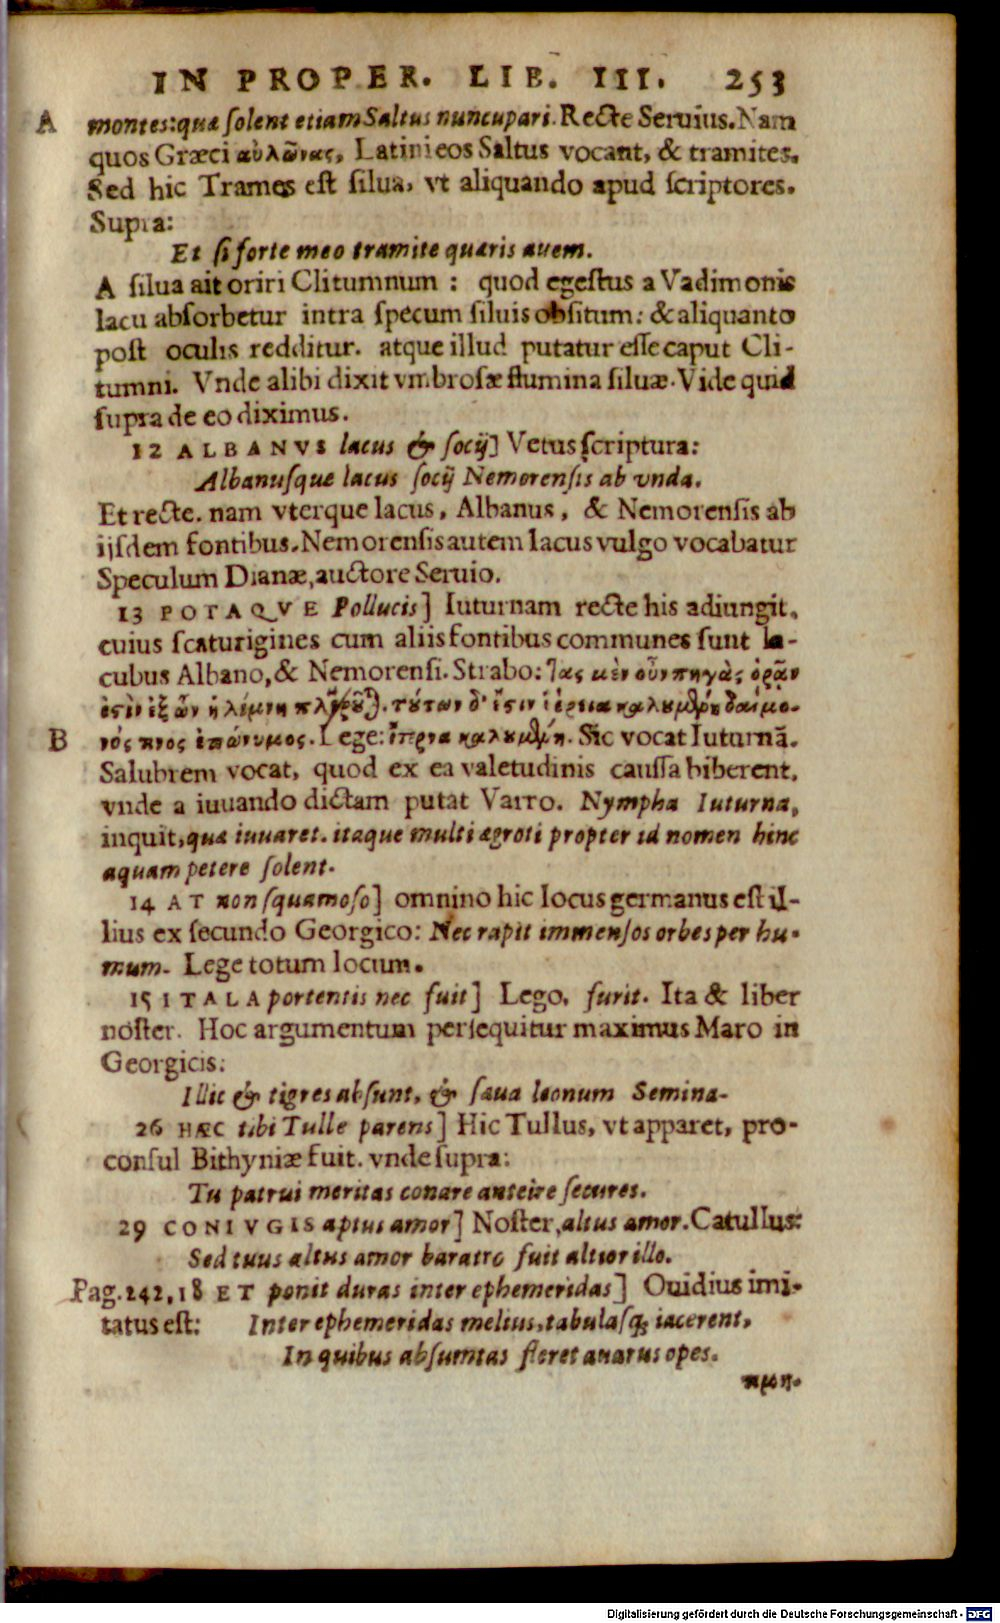 IN PROPER. LIB. III. 253
A montes: quæ ſolent etiam Saltus nuncupari. Recte Seruius. Nam
quos Græci αὐλῶνας, Latini eos Saltus vocant, & tramites.
Sed hic Trames eſt ſilua, vt aliquando apud ſcriptores.
Supra:
Et ſi forte meo tramite quæris auem.
A ſilua ait oriri Clitumnum : quod egeſtus a Vadimonis
lacu abſorbetur intra ſpecum ſiluis obſitum: & aliquanto
poſt oculis redditur. atque illud putatur eſſe caput Cli-
tumni. Vnde alibi dixit vmbroſæ flumina ſiluæ. Vide quid
ſupra de eo diximus.
12 ALBANVS lacus & ſocij] Vetus ſcriptura:
Albanuſque lacus ſocij Nemorenſis ab vnda.
Et recte. nam vterque lacus, Albanus, & Nemorenſis ab
ijſdem fontibus. Nemorenſis autem lacus vulgo vocabatur
Speculum Dianæ, auctore Seruio.
13 POTAQVE Pollucis] Iuturnam recte his adiungit,
cuius ſcaturigines cum aliis fontibus communes ſunt la-
cubus Albano, & Nemorenſi. Strabo: Τὰς μὲν οὖν πηγὰς ὁρᾷν
ἐστὶν ἐξ ὧν ἡ λίμνη τούτων δ' ἔστιν δαίμο-
B νός τινος ἐπώνυμος. Lege: Sic vocat Iuturnã.
Salubrem vocat, quod ex ea valetudinis cauſſa biberent,
vnde a iuuando dictam putat Varro. Nympha Iuturna,
inquit, quæ iuuaret. itaque multi ægroti propter id nomen hinc
aquam petere ſolent.
14 AT non ſquamoſo] omnino hic locus germanus eſt il-
lius ex ſecundo Georgico: Nec rapit immenſos orbes per hu-
mum. Lege totum locum.
15 ITALA portentis nec fuit] Lego, furit. Ita & liber
noſter. Hoc argumentum perſequitur maximus Maro in
Georgicis:
Illic & tigres abſunt, & ſæua leonum Semina-
26 HÆC tibi Tulle parens] Hic Tullus, vt apparet, pro-
conſul Bithyniæ fuit. vnde ſupra:
Tu patrui meritas conare anteire ſecures.
29 CONIVGIS aptus amor] Noſter, altus amor. Catullus:
Sed tuus altus amor baratro fuit altior illo.
Pag. 242, 18 ET ponit duras inter ephemeridas] Ouidius imi-
tatus eſt: Inter ephemeridas melius, tabulaſq; iacerent,
In quibus abſumtas fleret auarus opes.
Digitalisierung gefördert durch die Deutsche Forschungsgemeinschaft - DFG